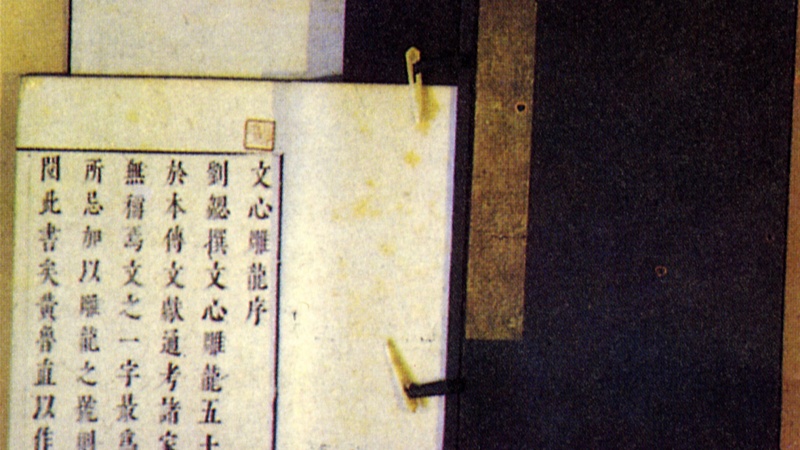 文心雕龍序
劉勰撰文心雕龍五十
於本傳文獻通考諸家
無稱焉文之一字最為
所忌加以雕龍之
閱此書矣黃魯直以作